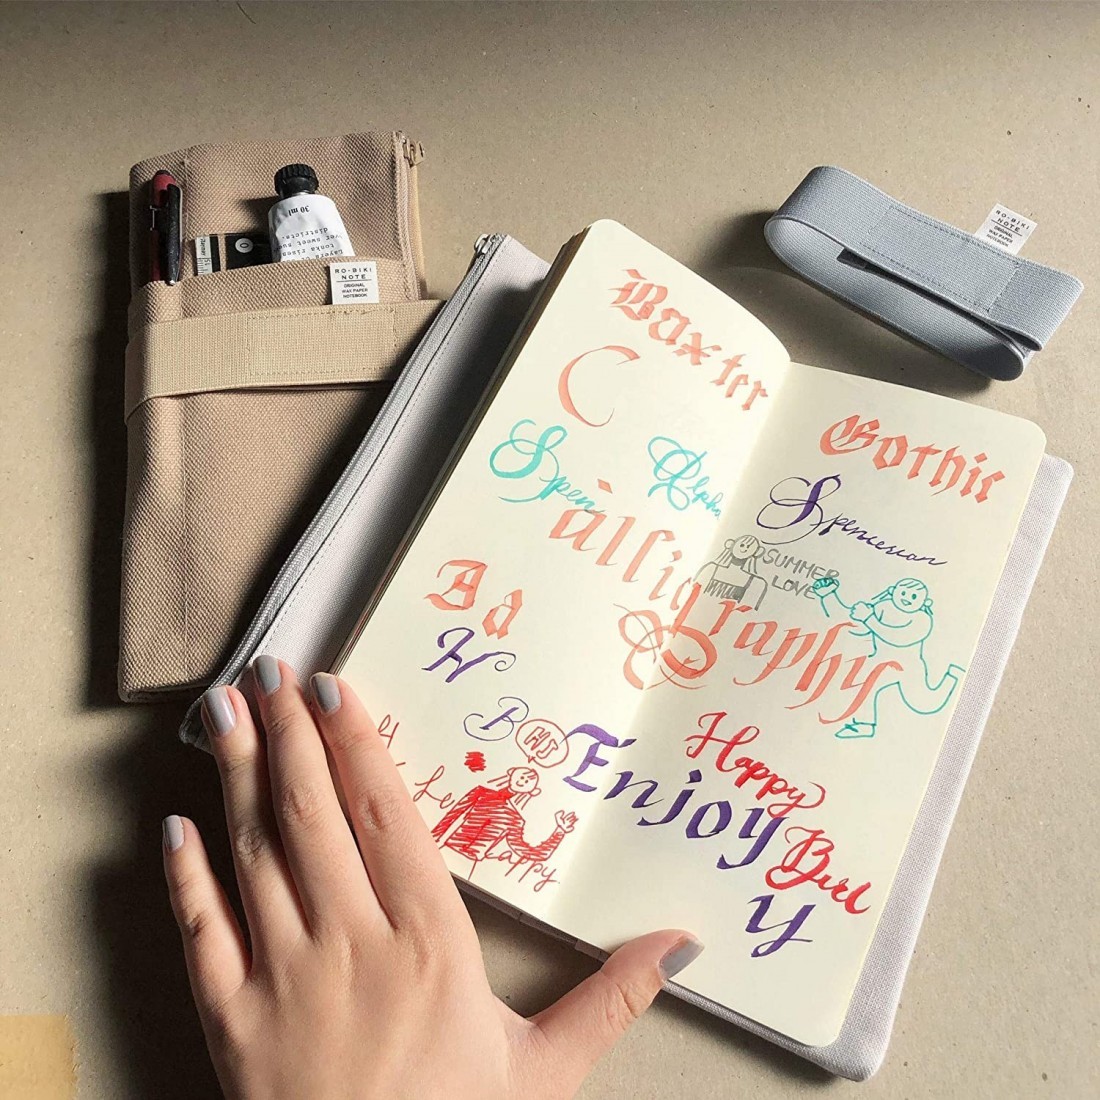 30 ml
RO-BIKI
NOTE
ORIGINAL
WAX PAPER
NOTEBOOK
RO-BIKI
NOTE
ORIGINAL
WAX PAPER
NOTEBOOK
Baxter
C
Spen
Alpha
alligraphy
A a
H
B
HI
Le
Happy
Gothic
Spencerian
SUMMER
LOVE
Happy
Enjoy
y